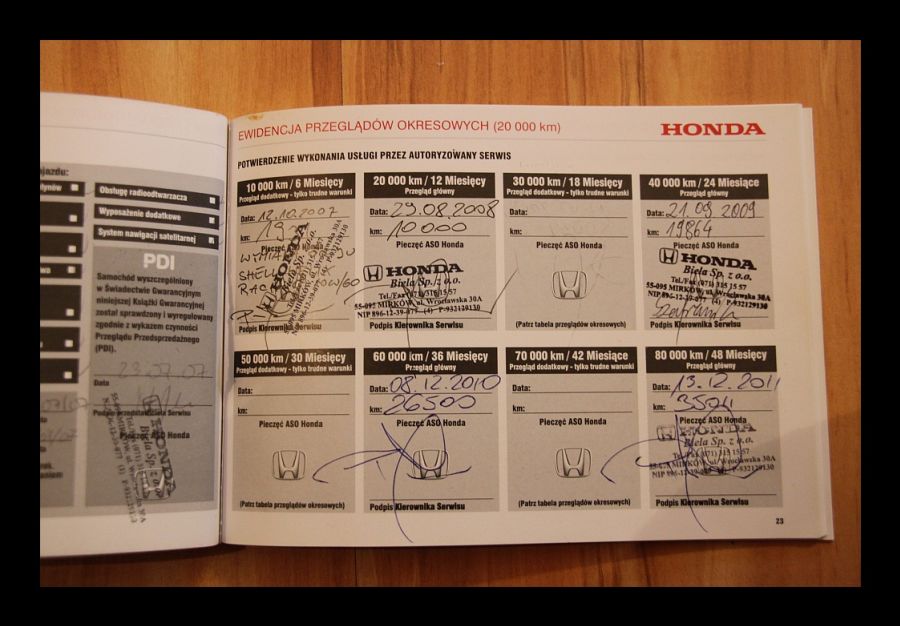 ajazdu:
płynów
Obsługę radioodtwarzacza
Wyposażenie dodatkowe
System nawigacji satelitarnej
PDI
Samochód wyszczególniony
w Świadectwie Gwarancyjnym
niniejszej Książki Gwarancyjnej
został sprawdzony i wyregulowany
zgodnie z wykazem czynności
Przeglądu Przedsprzedażnego
(PDI).
23.07.07
Data
Podpis przedstawiciela Serwisu
Pieczęć ASO Honda
HONDA
Biela Sp. z o.o.
EWIDENCJA PRZEGLĄDÓW OKRESOWYCH (20 000 km)
HONDA
POTWIERDZENIE WYKONANIA USŁUGI PRZEZ AUTORYZOWANY SERWIS
10 000 km / 6 Miesięcy
Przegląd dodatkowy - tylko trudne warunki
Data: 12.10.2007
km:
Pieczęć ASO Honda
HONDA
Biela Sp. z o.o.
SHELL
Podpis Kierownika Serwisu
20 000 km / 12 Miesięcy
Przegląd główny
Data: 29.08.2008
km: 10000
Pieczęć ASO Honda
HONDA
Biela Sp. z o.o.
Tel./Fax (071) 315 15 57
55-095 MIRKÓW, ul. Wrocławska 30A
NIP 896-12-39-077 (4) P-932129130
Podpis Kierownika Serwisu
30 000 km / 18 Miesięcy
Przegląd dodatkowy - tylko trudne warunki
Data:
km:
Pieczęć ASO Honda
(Patrz tabela przeglądów okresowych)
40 000 km / 24 Miesiące
Przegląd główny
Data: 21.09.2009
km: 19864
Pieczęć ASO Honda
HONDA
Biela Sp. z o.o.
Tel./Fax (071) 315 15 57
55-095 MIRKÓW, ul. Wrocławska 30A
NIP 896-12-39-077 (4) P-932129130
Podpis Kierownika Serwisu
50 000 km / 30 Miesięcy
Przegląd dodatkowy - tylko trudne warunki
Data:
km:
Pieczęć ASO Honda
(Patrz tabela przeglądów okresowych)
60 000 km / 36 Miesięcy
Przegląd główny
Data: 08.12.2010
km: 26500
Pieczęć ASO Honda
Podpis Kierownika Serwisu
70 000 km / 42 Miesiące
Przegląd dodatkowy - tylko trudne warunki
Data:
km:
Pieczęć ASO Honda
(Patrz tabela przeglądów okresowych)
80 000 km / 48 Miesięcy
Przegląd główny
Data: 13.12.2011
km:
Pieczęć ASO Honda
HONDA
Biela Sp. z o.o.
Tel./Fax (071) 315 15 57
55-095 MIRKÓW, ul. Wrocławska 30A
NIP 896-12-39-077 (4) P-932129130
Podpis Kierownika Serwisu
23